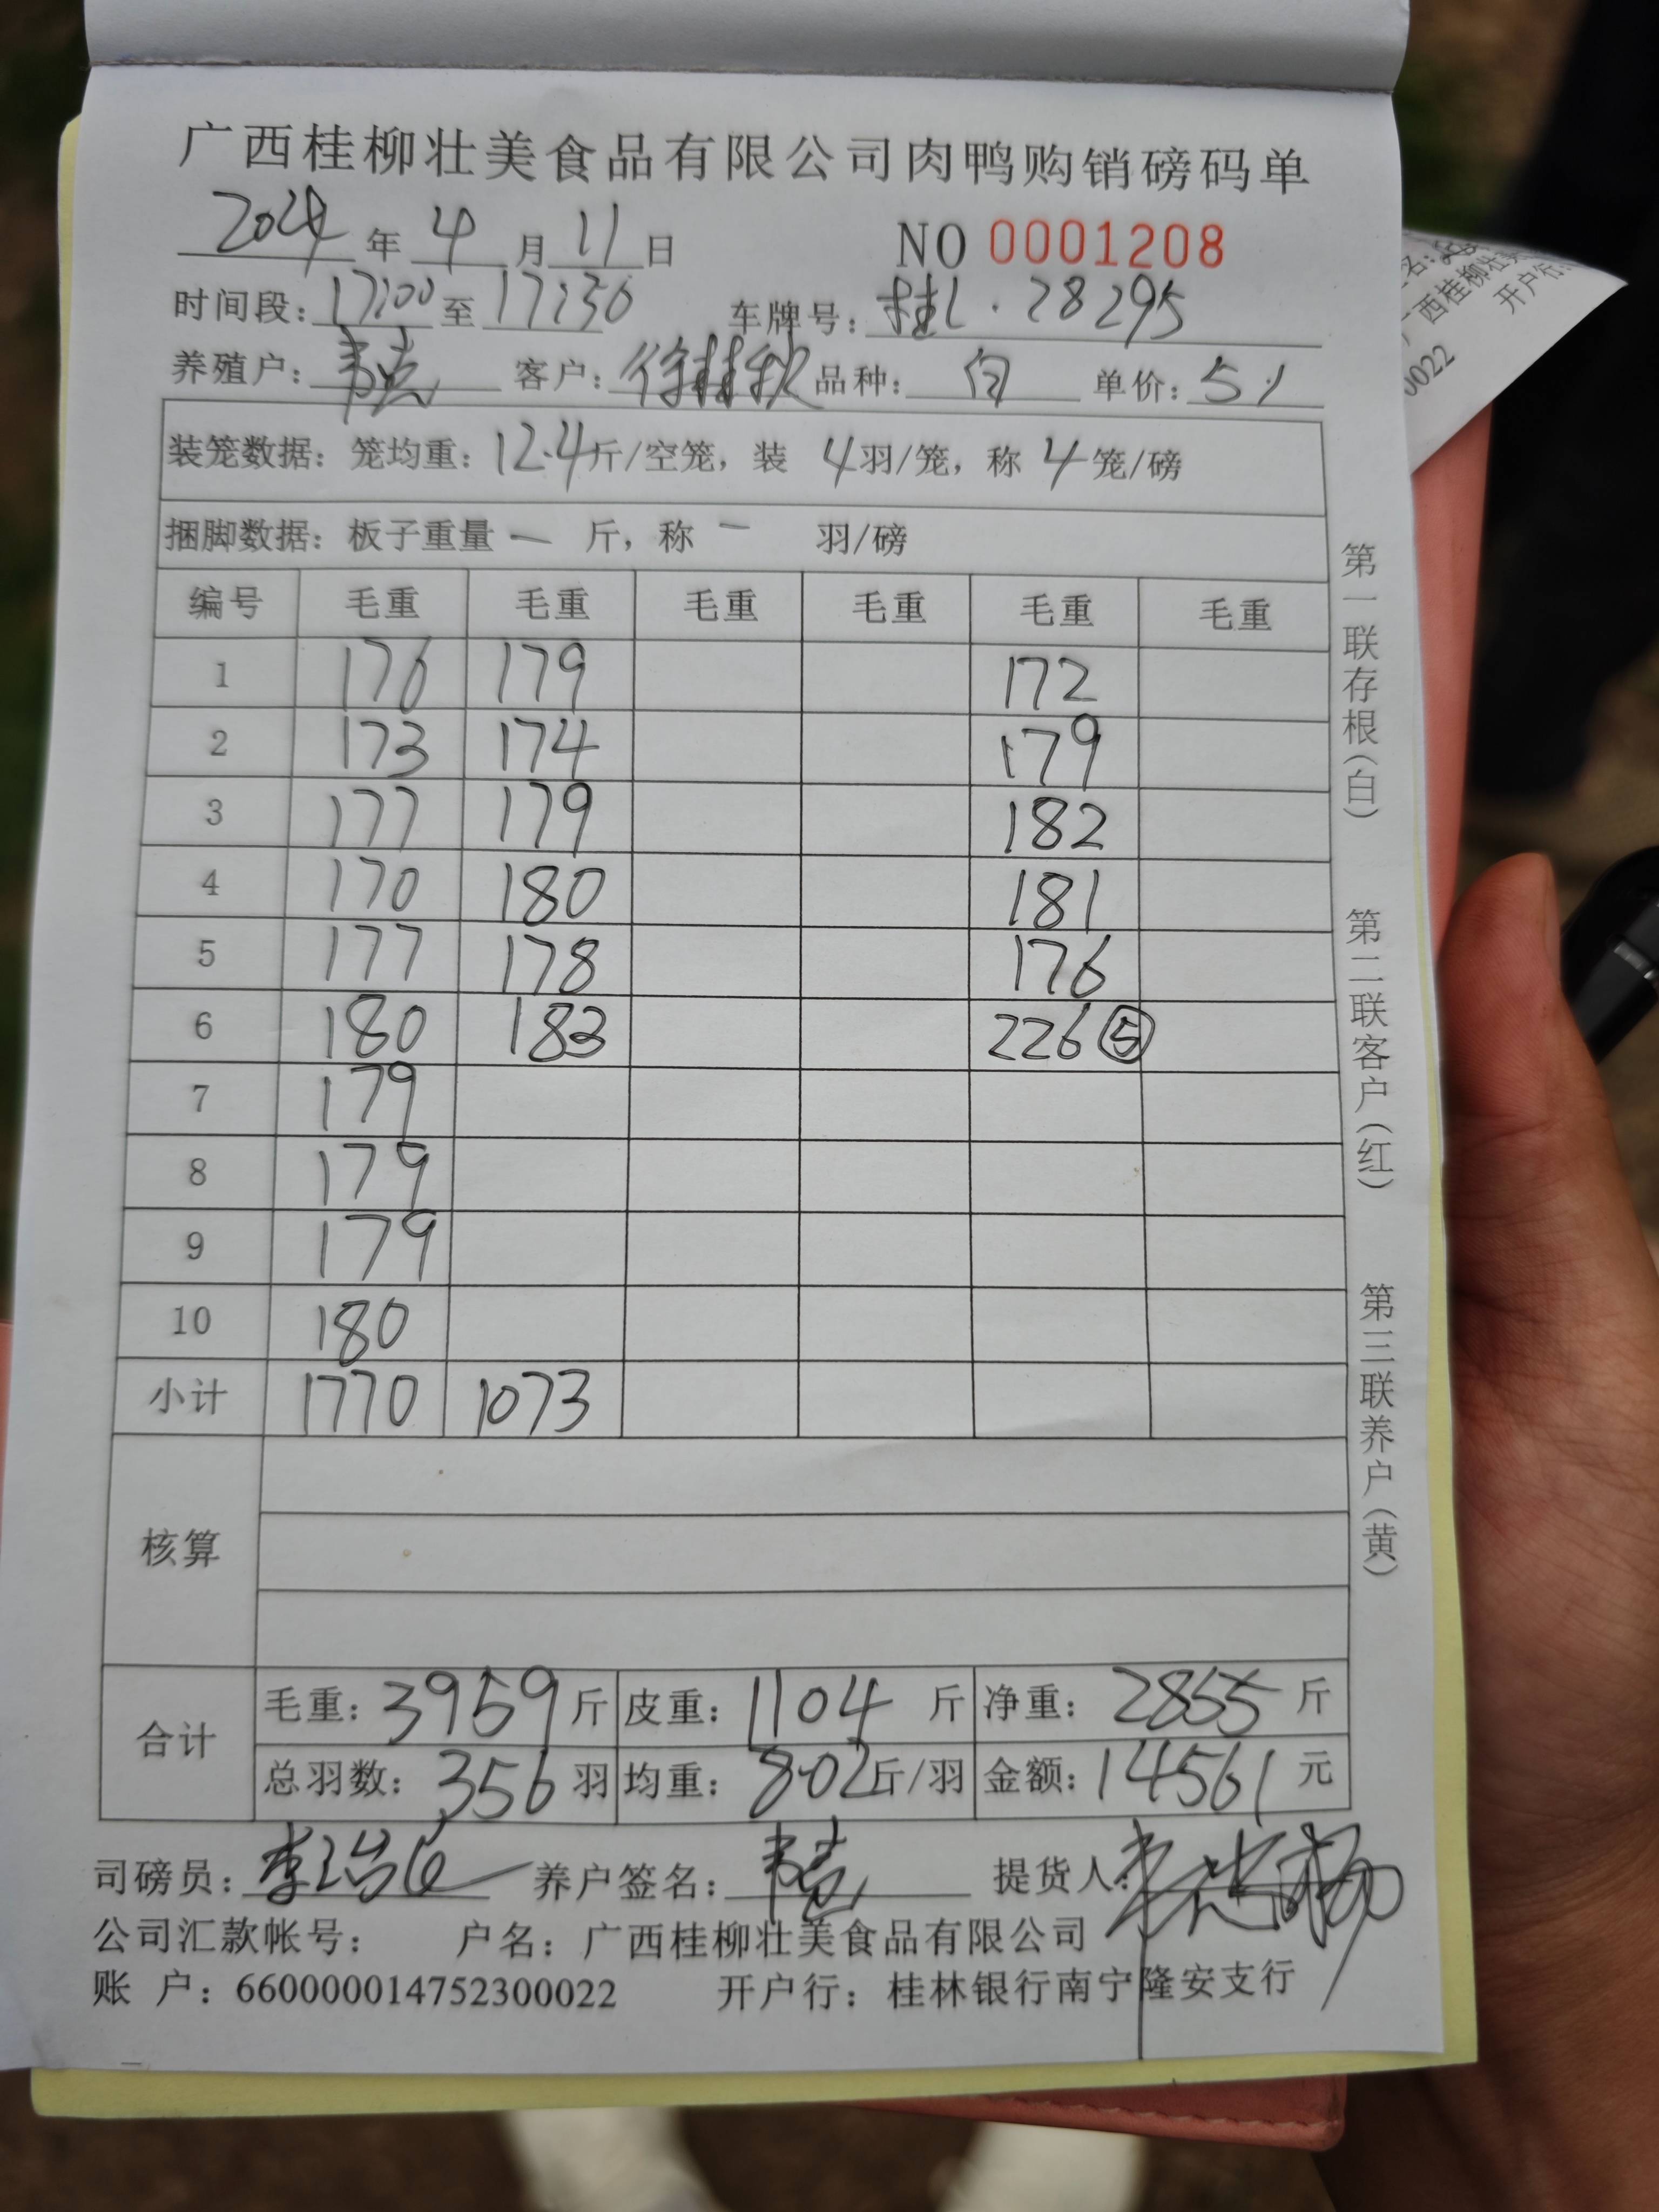 广西桂柳壮美食品有限公司肉鸭购销磅码单
2024年 4 月 11 日 NO 0001208
时间段：17:00 至 17:30 车牌号：桂L·28295
养殖户： 客户：徐桂秋 品种：白 单价：5.1
装笼数据：笼均重：12.4斤/空笼，装 4羽/笼，称 4 笼/磅
捆脚数据：板子重量 — 斤，称 — 羽/磅
编号 毛重 毛重 毛重 毛重 毛重 毛重
1 176 179 172
2 173 174 179
3 177 179 182
4 170 180 181
5 177 178 176
6 180 183 226 ⑤
7 179
8 179
9 179
10 180
小计 1770 1073
核算
合计
毛重：3959斤 皮重：1104 斤 净重：2855 斤
总羽数：356 羽 均重：8.02斤/羽 金额：14561 元
司磅员： 养户签名： 提货人：
公司汇款帐号： 户名：广西桂柳壮美食品有限公司
账 户：660000014752300022 开户行：桂林银行南宁隆安支行
第一联存根(白) 第二联客户(红) 第三联养户(黄)
西桂柳壮美
开户行:
0022